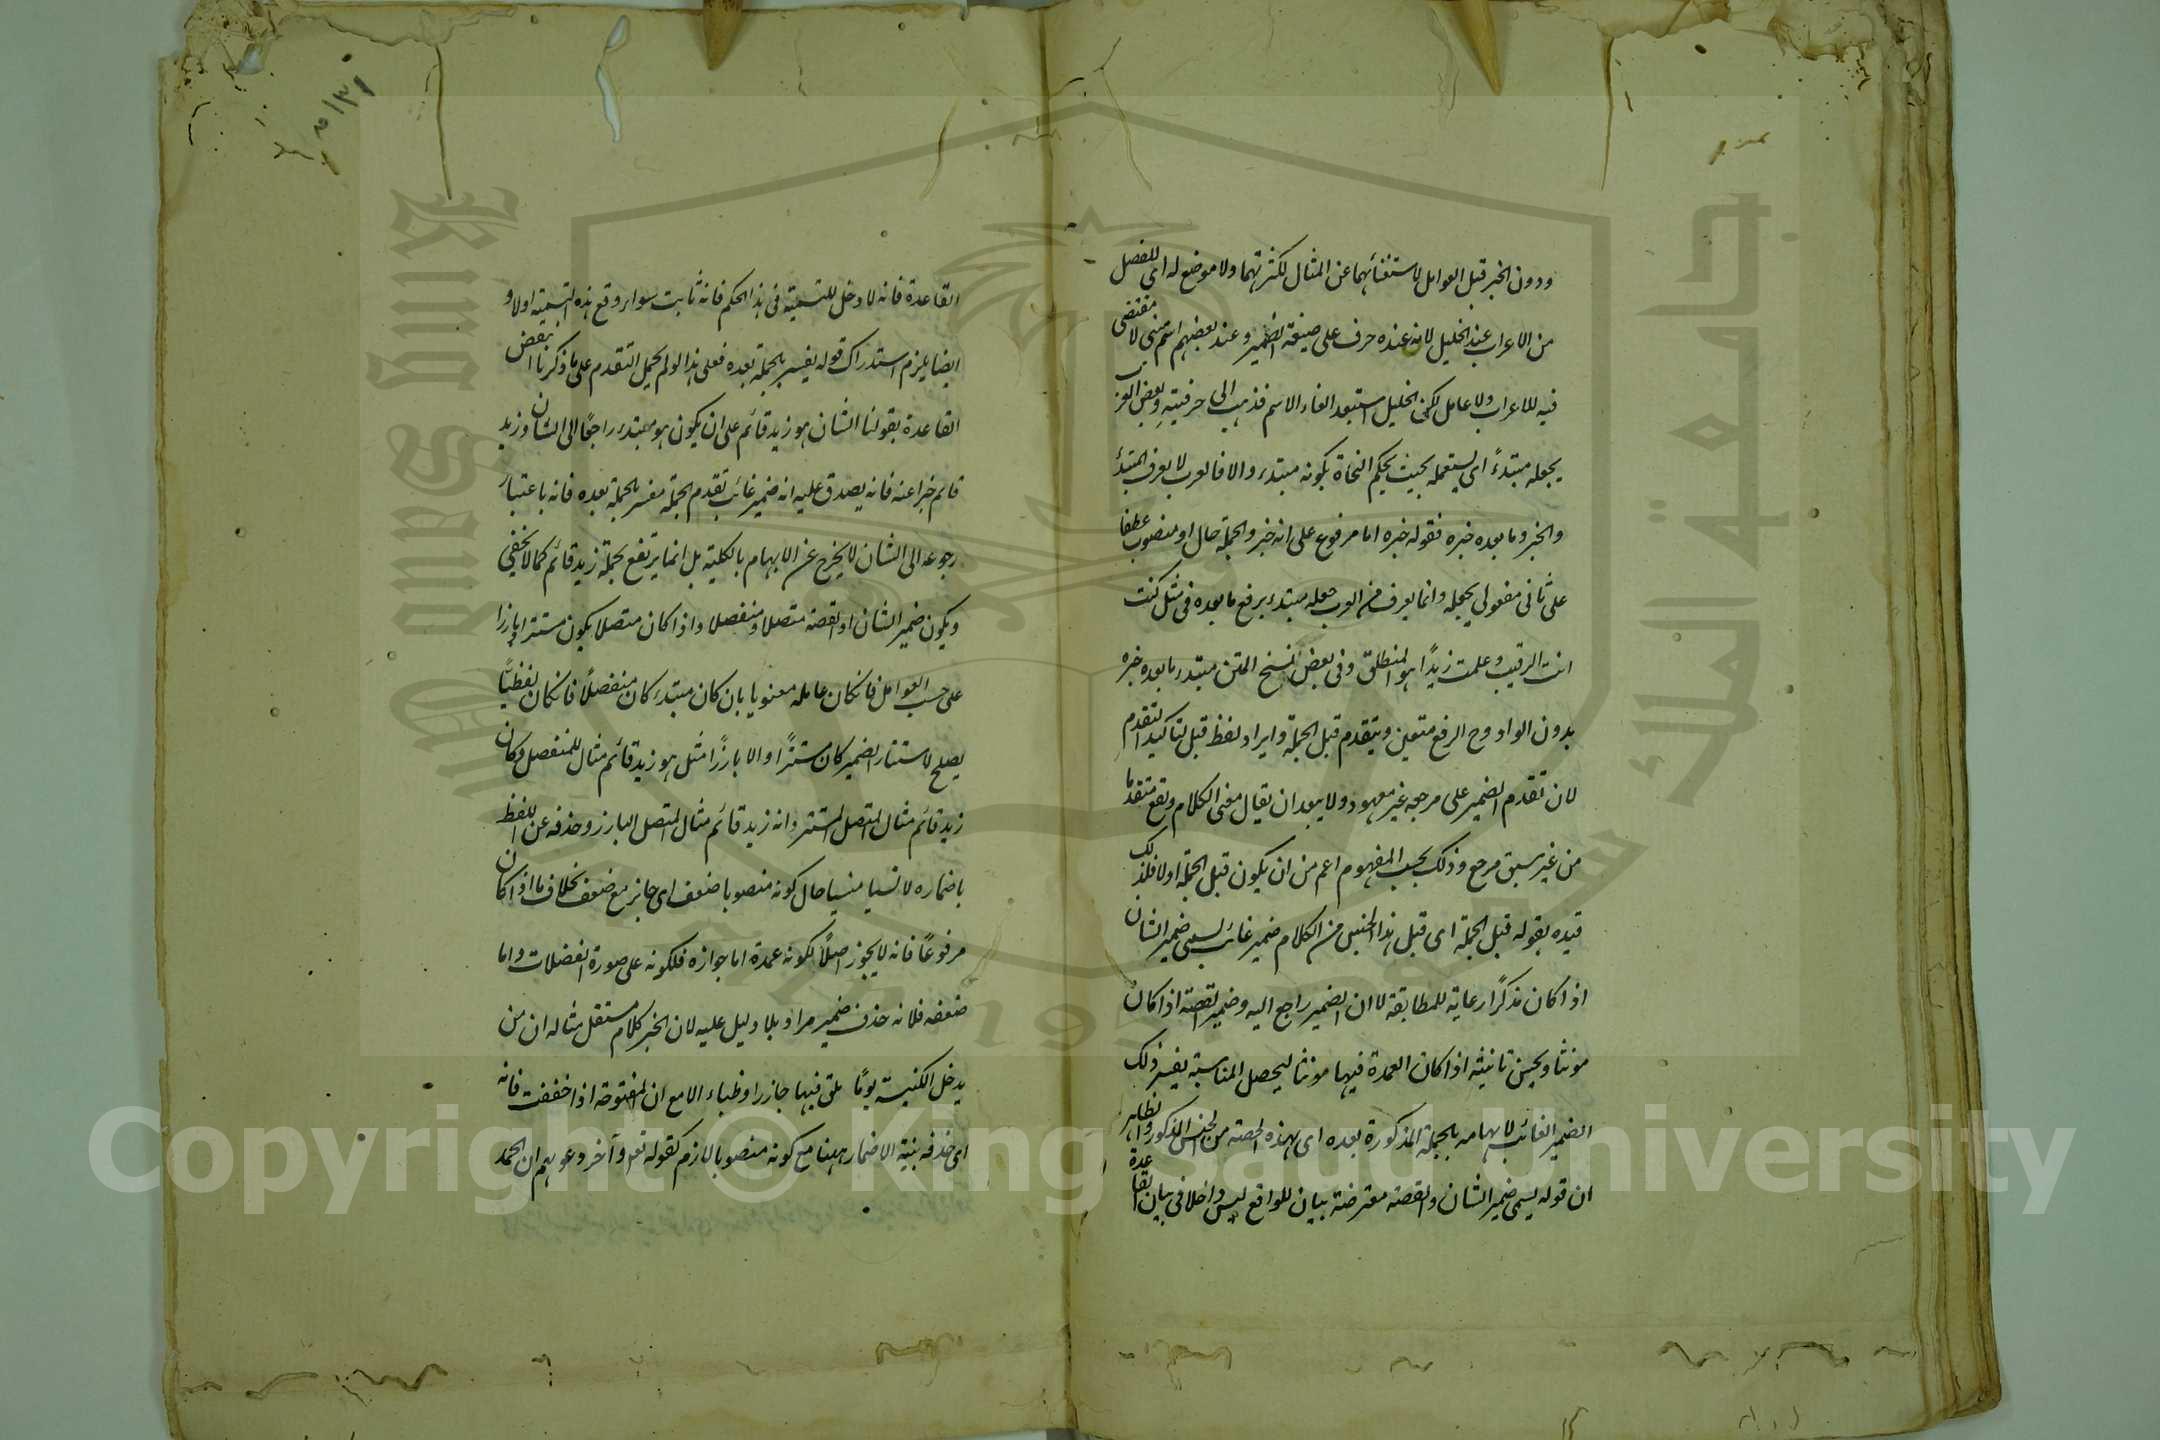 ودون الخبر قبل العوامل لاستغنائهما عن المثال لكثرتهما ولا موضع له اى للفصل
من الاعراب عند الخليل لانه عنده حرف على صيغة الضمير وعند بعضهم اسم مبنى لا مقتضى
فيه للاعراب ولا عامل لكن الخليل استبعد الغاء الاسم فذهب الى حرفيته وبعض العرب
يجعله مبتدءً اى يستعمله بحيث يحكم النحاة بكونه مبتدء والا فالعرب لا يعرف المبتدأ
والخبر وما بعده خبره فقوله خبره اما مرفوع على انه خبر والجملة حال او منصوب عطفا
على ثانى مفعولى يجعله وانما يعرف من العرب جعله مبتدء برفع ما بعده فى مثل كنت
انت الرقيب وعلمت زيدًا هو المنطلق وفى بعض نسخ المتن مبتدء ما بعده خبره
بدون الواو وح الرفع متعين ويتقدم قبل الجملة وايراد لفظ قبل لتاكيد التقدم
لان تقدم الضمير على مرجعه غير معهود ولا يبعد ان يقال معنى الكلام وتقع متقدما
من غير سبق مرجع وذلك بحسب المفهوم اعم من ان يكون قبل الجملة اولا فلذلك
قيده بقوله قبل الجملة اى قبل هذا الجنس من الكلام ضمير غائب يسمى ضمير الشان
اذا كان مذكرًا رعاية للمطابقة لا ان الضمير راجع اليه وضمير القصة اذا كان
مونثا ويحسن تانيثه اذا كان العمدة فيها مونثا ليحصل المناسبة يفسر ذلك
الضمير الغائب لابهامه بالجملة المذكورة بعده اى بهذه الحصة من الجنس المذكور والظاهر
ان قوله يسمى ضمير الشان والقصة معترضة بيان للواقع ليس داخلا فى بيان القاعدة
القاعدة فانه لا دخل للتسمية فى هذا الحكم فانه ثابت سواء وقع هذه التسمية اولا و
ايضا يلزم استدراك قوله يفسر بالجملة بعده فعلى هذا لو لم يحمل التقدم على ما ذكرنا انتقض
القاعدة بقولنا الشان هو زيد قائم على ان يكون هو مبتدء راجعًا الى الشان وزيد
قائم خبرا عنه فانه يصدق عليه انه ضمير غائب تقدم الجملة مفسر بالجملة بعده فانه باعتبار
رجوعه الى الشان لا يخرج عن الابهام بالكلية بل انما يرتفع بجملة زيد قائم كما لا يخفى
ويكون ضمير الشان او القصة متصلا ومنفصلا واذا كان متصلا يكون مستترا وبارزا
على حسب العوامل فان كان عامله معنويا بان كان مبتدء كان منفصلًا فان كان لفظيًا
يصلح لاستتار الضمير كان مستترًا والا بارزًا مثل هو زيد قائم مثال للمنفصل وكان
زيد قائم مثال المتصل المستتر وانه زيد قائم مثال المتصل البارز وحذفه عن اللفظ
باضماره لا نسيا منسيا حال كونه منصوبا ضعف اى جائز مع ضعف بخلاف ما اذا كان
مرفوعًا فانه لا يجوز اصلًا لكونه عمدة اما جوازه فلكونه على صورة الفضلات واما
ضعفه فلانه حذف ضمير مراد بلا دليل عليه لان الخبر كلام مستقل مثاله ان من
يدخل الكنيسة يومًا يلق فيها جازرا وظباء الا مع ان المفتوحة اذا خففت فانه
اى حذفه بنية الاضمار ههنا مع كونه منصوبا لازم كقوله تعر وآخر دعويهم ان الحمد